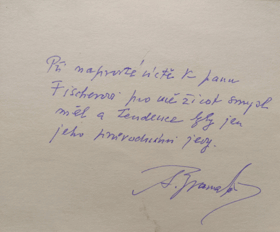 Při naprosté úctě k panu
Fischerovi pro mě život smysl
měl a tendence byly jen
jeho průvodními jevy.